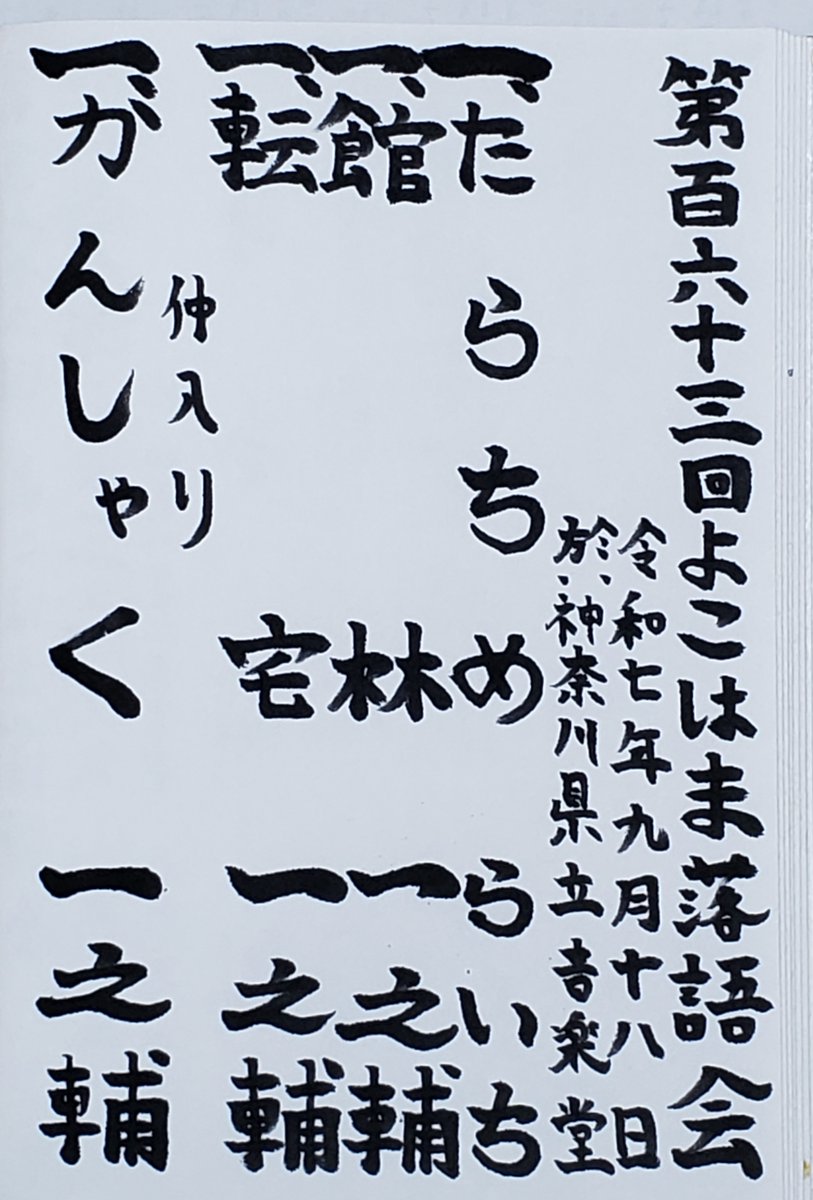 第百六十三回よこはま落語会
令和七年九月十八日
於、神奈川県立音楽堂
一、だらちめ らいち
一、館林 一之輔
一、転宅 一之輔
仲入り
一、がんしゃく 一之輔